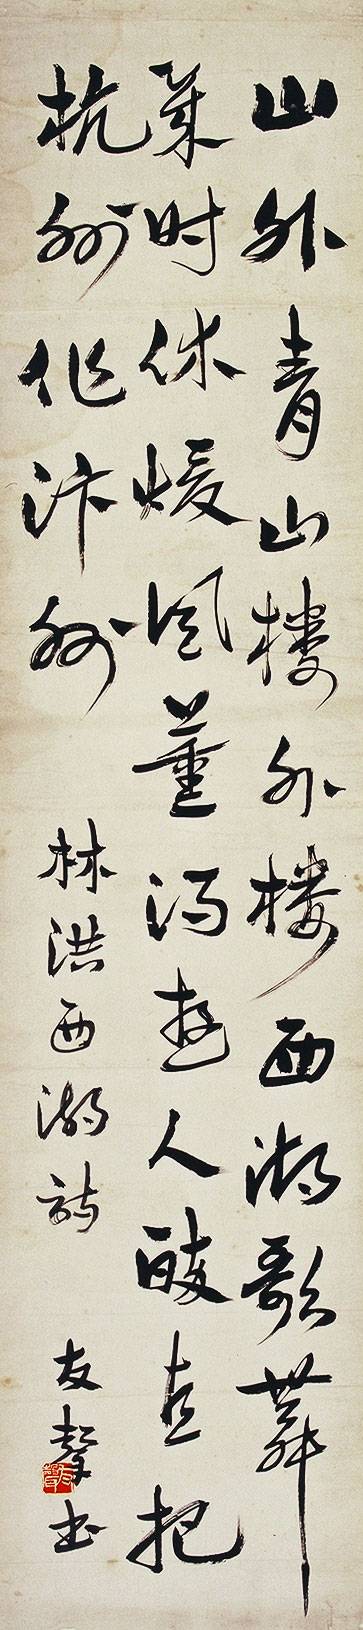 山外青山楼外楼西湖歌舞
幾时休暖风薰得遊人醉直把
杭州作汴州
林洪西湖詩
友聲书